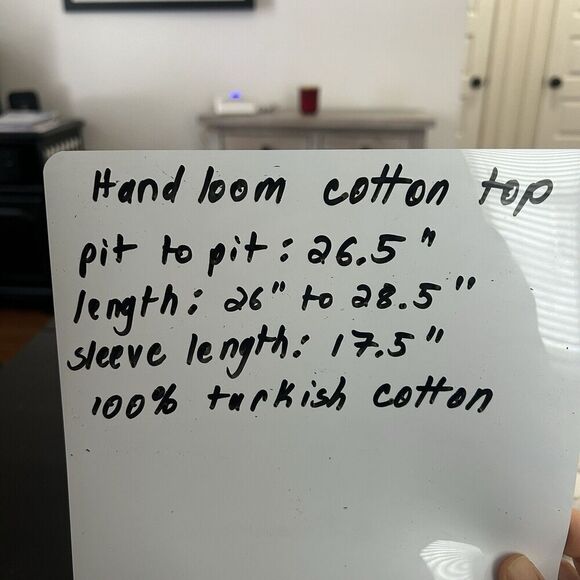 Hand loom cotton top
pit to pit: 26.5"
length: 26" to 28.5"
sleeve length: 17.5"
100% turkish cotton